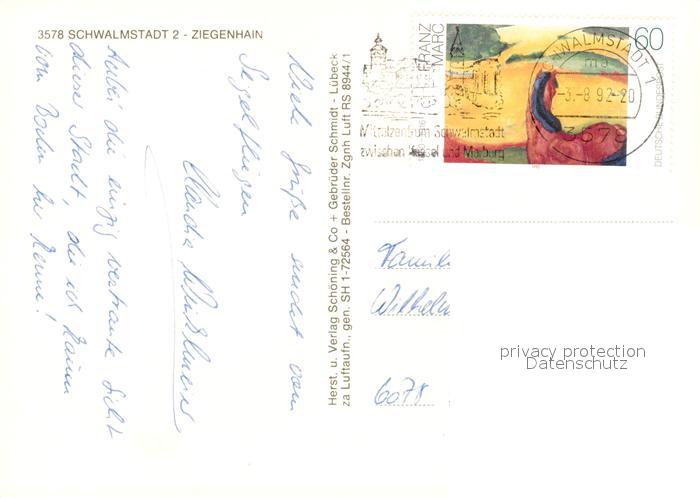 3578 SCHWALMSTADT 2 - ZIEGENHAIN
Viele Grüße sendet vom
Segelfliegen
Claudia
Anbei die einzig vertraute Sicht
dieser Stadt, die ich kaum
vom Boden her kenne!
Herst. u. Verlag Schöning & Co + Gebrüder Schmidt - Lübeck
za Luftaufn., gen. SH 1-72564 - Bestellnr. Zgnh Luft RS 8944/1
FRANZ
MARC
60
DEUTSCHE BUNDESPOST
SCHWALMSTADT 1
-3.-8.92-20
3578
Mittelzentrum Schwalmstadt
zwischen Kassel und Marburg
Famili
Wilhelm
6078
privacy protection
Datenschutz